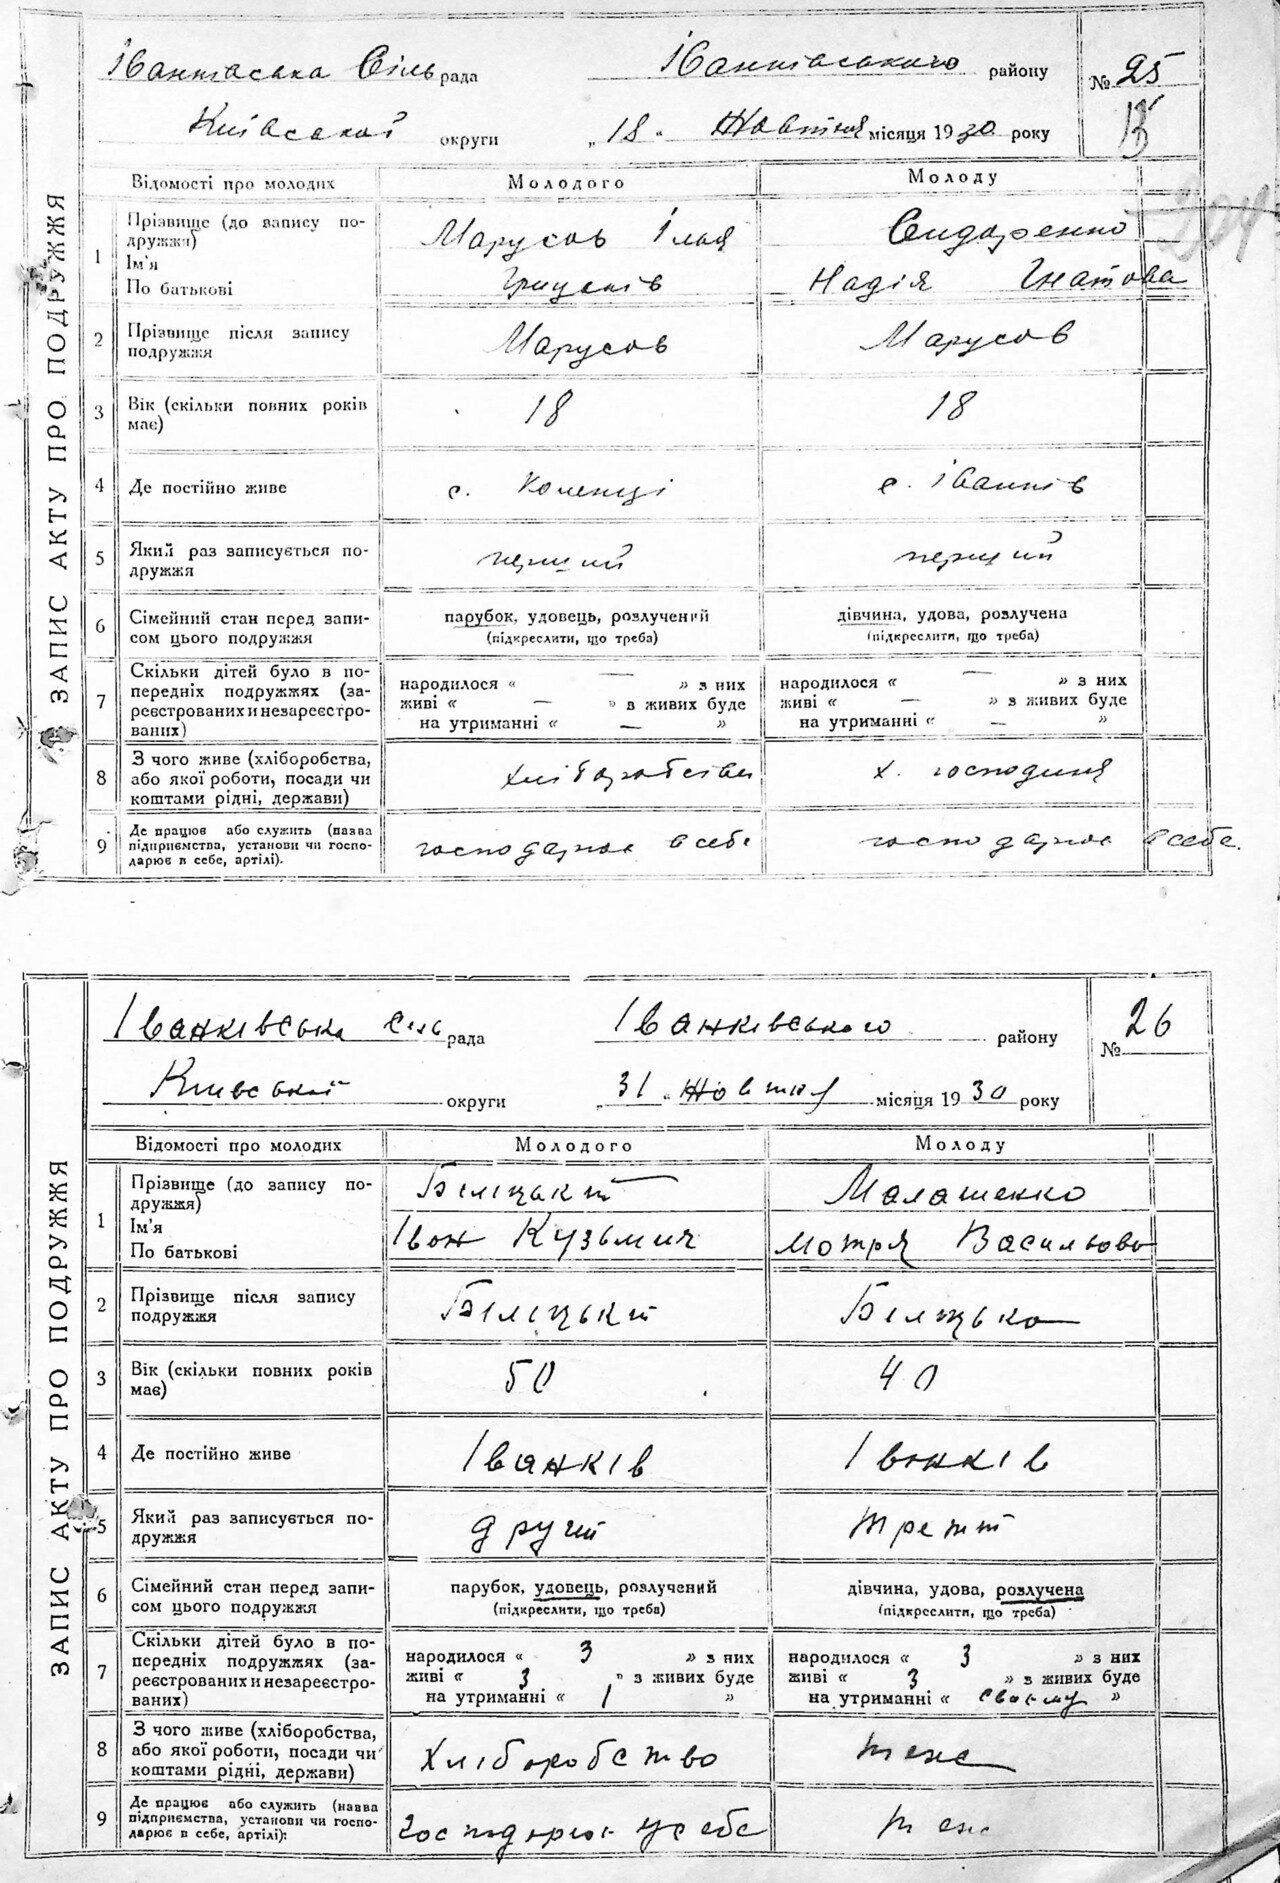 ЗАПИС АКТУ ПРО ПОДРУЖЖЯ
Іванківська Сіль рада Іванківського району № 25
Київської округи „18“ Жовтня місяця 1930 року
Відомості про молодих Молодого Молоду
1 Прізвище (до запису по-
дружжя)
Ім'я
По батькові
Марусов Ілля
Грицьків
Сидоренко
Надія Гнатова
2 Прізвище після запису
подружжя
Марусов Марусов
3 Вік (скільки повних років
має)
18 18
4 Де постійно живе с. Коленці с. Іванків
5 Який раз записується по-
дружжя
перший перший
6 Сімейний стан перед запи-
сом цього подружжя
парубок, удовець, розлучений
(підкреслити, що треба)
дівчина, удова, розлучена
(підкреслити, що треба)
7 Скільки дітей було в по-
передніх подружжях (за-
реєстрованих и незареєстро-
ваних)
народилося « — » з них
живі « — » з живих буде
на утриманні « — »
народилося « — » з них
живі « — » з живих буде
на утриманні « — »
8 З чого живе (хліборобства,
або якої роботи, посади чи
коштами рідні, держави)
хліборобства х. господиня
9 Де працює або служить (назва
підприємства, установи чи госпо-
дарює в себе, артілі).
господарює в себе господарює в себе.
ЗАПИС АКТУ ПРО ПОДРУЖЖЯ
Іванківська сіль рада Іванківського району № 26
Київської округи „31“ Жовтня місяця 1930 року
Відомості про молодих Молодого Молоду
1 Прізвище (до запису по-
дружжя)
Ім'я
По батькові
Біліцький
Іван Кузьмич
Малашенко
Мотря Васильова
2 Прізвище після запису
подружжя
Біліцький Біліцька
3 Вік (скільки повних років
має)
50 40
4 Де постійно живе Іванків Іванків
5 Який раз записується по-
дружжя
другий третій
6 Сімейний стан перед запи-
сом цього подружжя
парубок, удовець, розлучений
(підкреслити, що треба)
дівчина, удова, розлучена
(підкреслити, що треба)
7 Скільки дітей було в по-
передніх подружжях (за-
реєстрованих и незареєстро-
ваних)
народилося « 3 » з них
живі « 3 » з живих буде
на утриманні « 1 »
народилося « 3 » з них
живі « 3 » з живих буде
на утриманні « своєму »
8 З чого живе (хліборобства,
або якої роботи, посади чи
коштами рідні, держави)
Хліборобство теж
9 Де працює або служить (назва
підприємства, установи чи госпо-
дарює в себе, артілі):
Господарює у себе теж